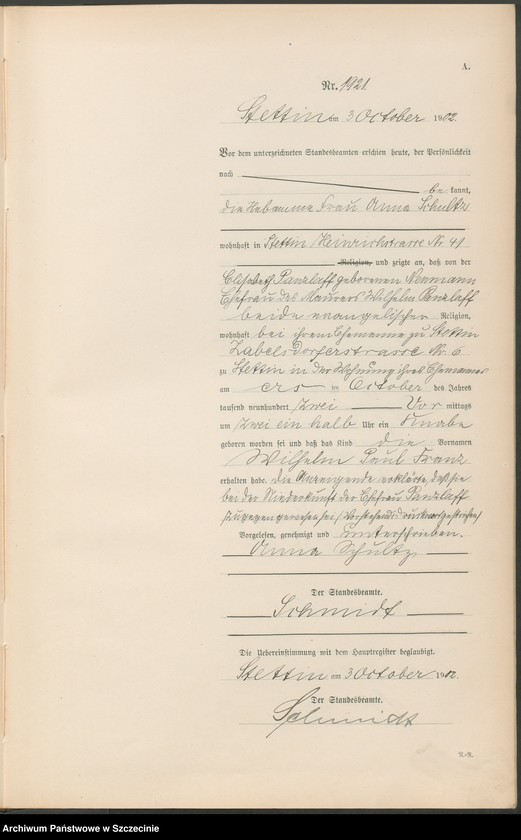 A.
Nr. 1921.
Stettin am 3 October 1902.
Vor dem unterzeichneten Standesbeamten erschien heute, der Persönlichkeit
nach
be kannt,
die Hebamme Frau Anna Schultz
wohnhaft in Stettin Heinrichstrasse Nr. 41
Religion, und zeigte an, daß von der
Elisabeth Panzlaff geborenen Neumann
Ehefrau des Maurers Wilhelm Panzlaff
beide evangelischer Religion,
wohnhaft bei ihrem Ehemanne zu Stettin
Zabelsdorferstrasse Nr. 6
zu Stettin in der Wohnung ihres Ehemannes
am ersten October des Jahres
tausend neunhundert zwei Vor mittags
um zwei ein halb Uhr ein Knabe
geboren worden sei und daß das Kind die Vornamen
Wilhelm Paul Franz
erhalten habe. Die Anzeigende erklärte, daß sie
bei der Niederkunft der Ehefrau Panzlaff
zugegen gewesen sei, (Vorstehend ein Druckwort gestrichen)
Vorgelesen, genehmigt und unterschrieben.
Anna Schultz
Der Standesbeamte.
Schmidt
Die Uebereinstimmung mit dem Hauptregister beglaubigt.
Stettin am 3 October 1902.
Der Standesbeamte.
Schmidt
Archiwum Państwowe w Szczecinie